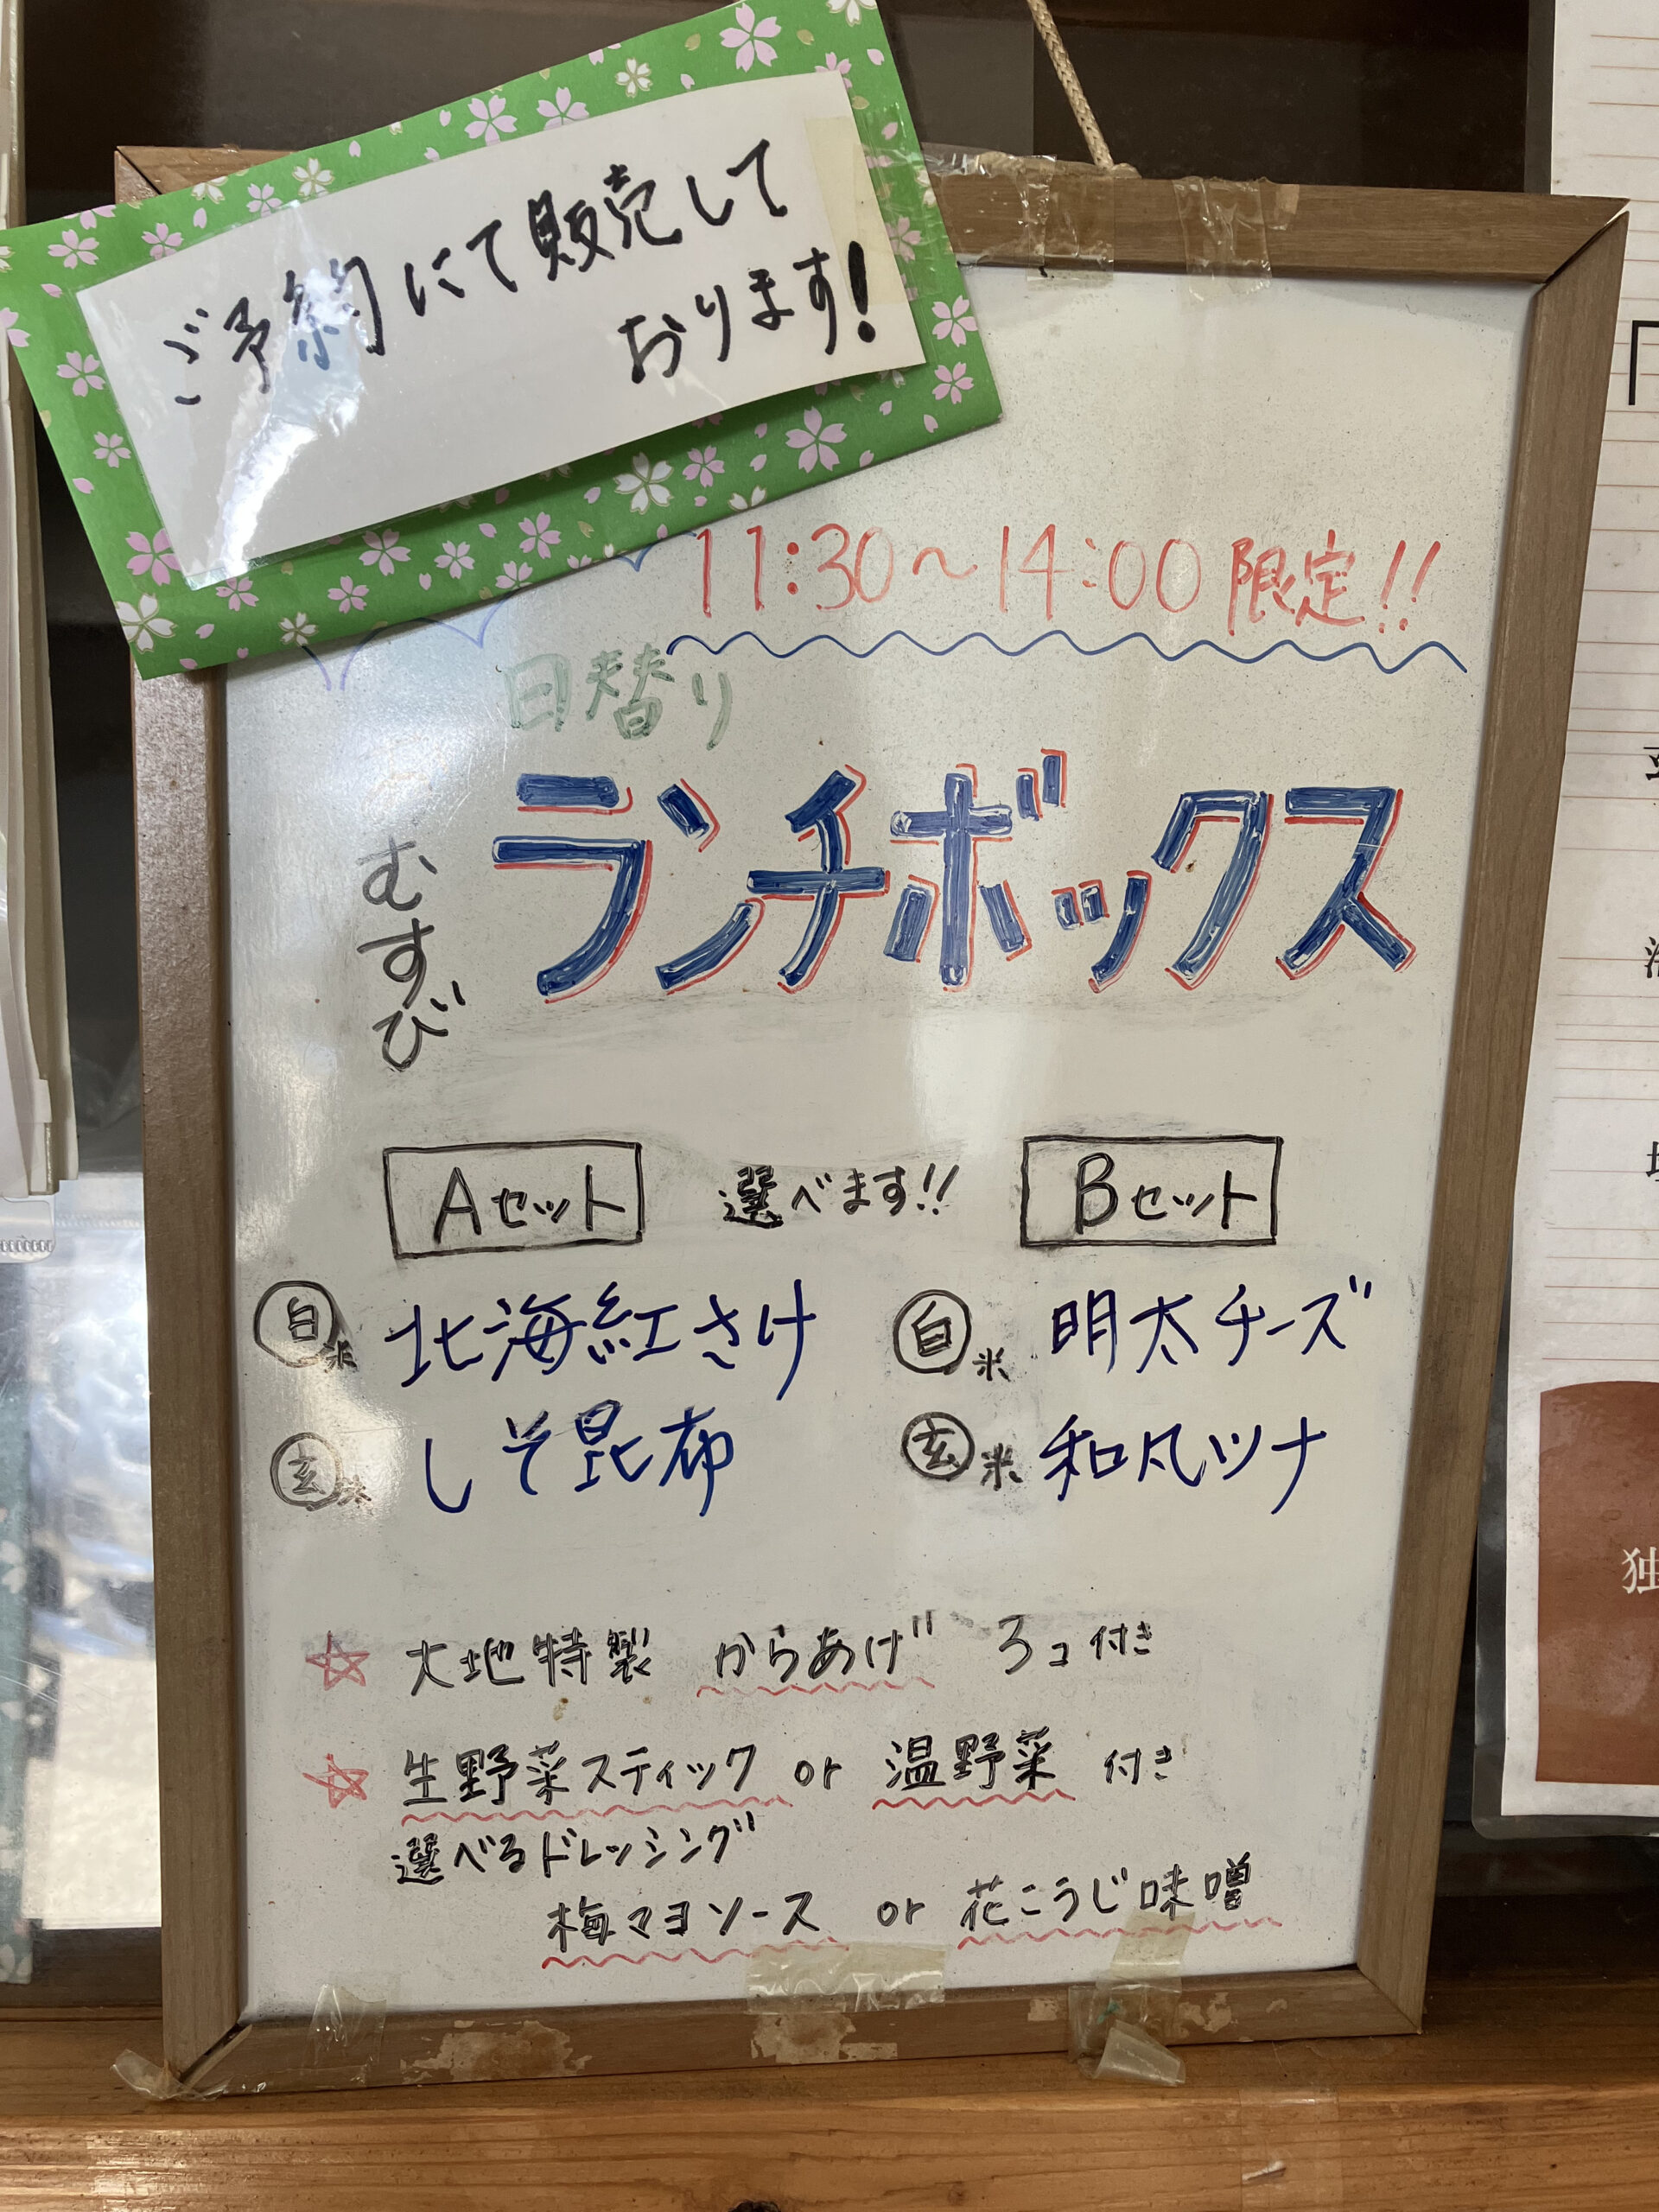 ご予約にて販売して
おります!
11:30～14:00 限定!!
日替り
むすび
ランチボックス
Aセット 選べます!! Bセット
白米 北海紅さけ 白米 明太チーズ
玄米 しそ昆布 玄米 和風ツナ
☆ 大地特製 からあげ 3コ付き
☆ 生野菜スティック or 温野菜 付き
選べるドレッシング
梅マヨソース or 花こうじ味噌
独